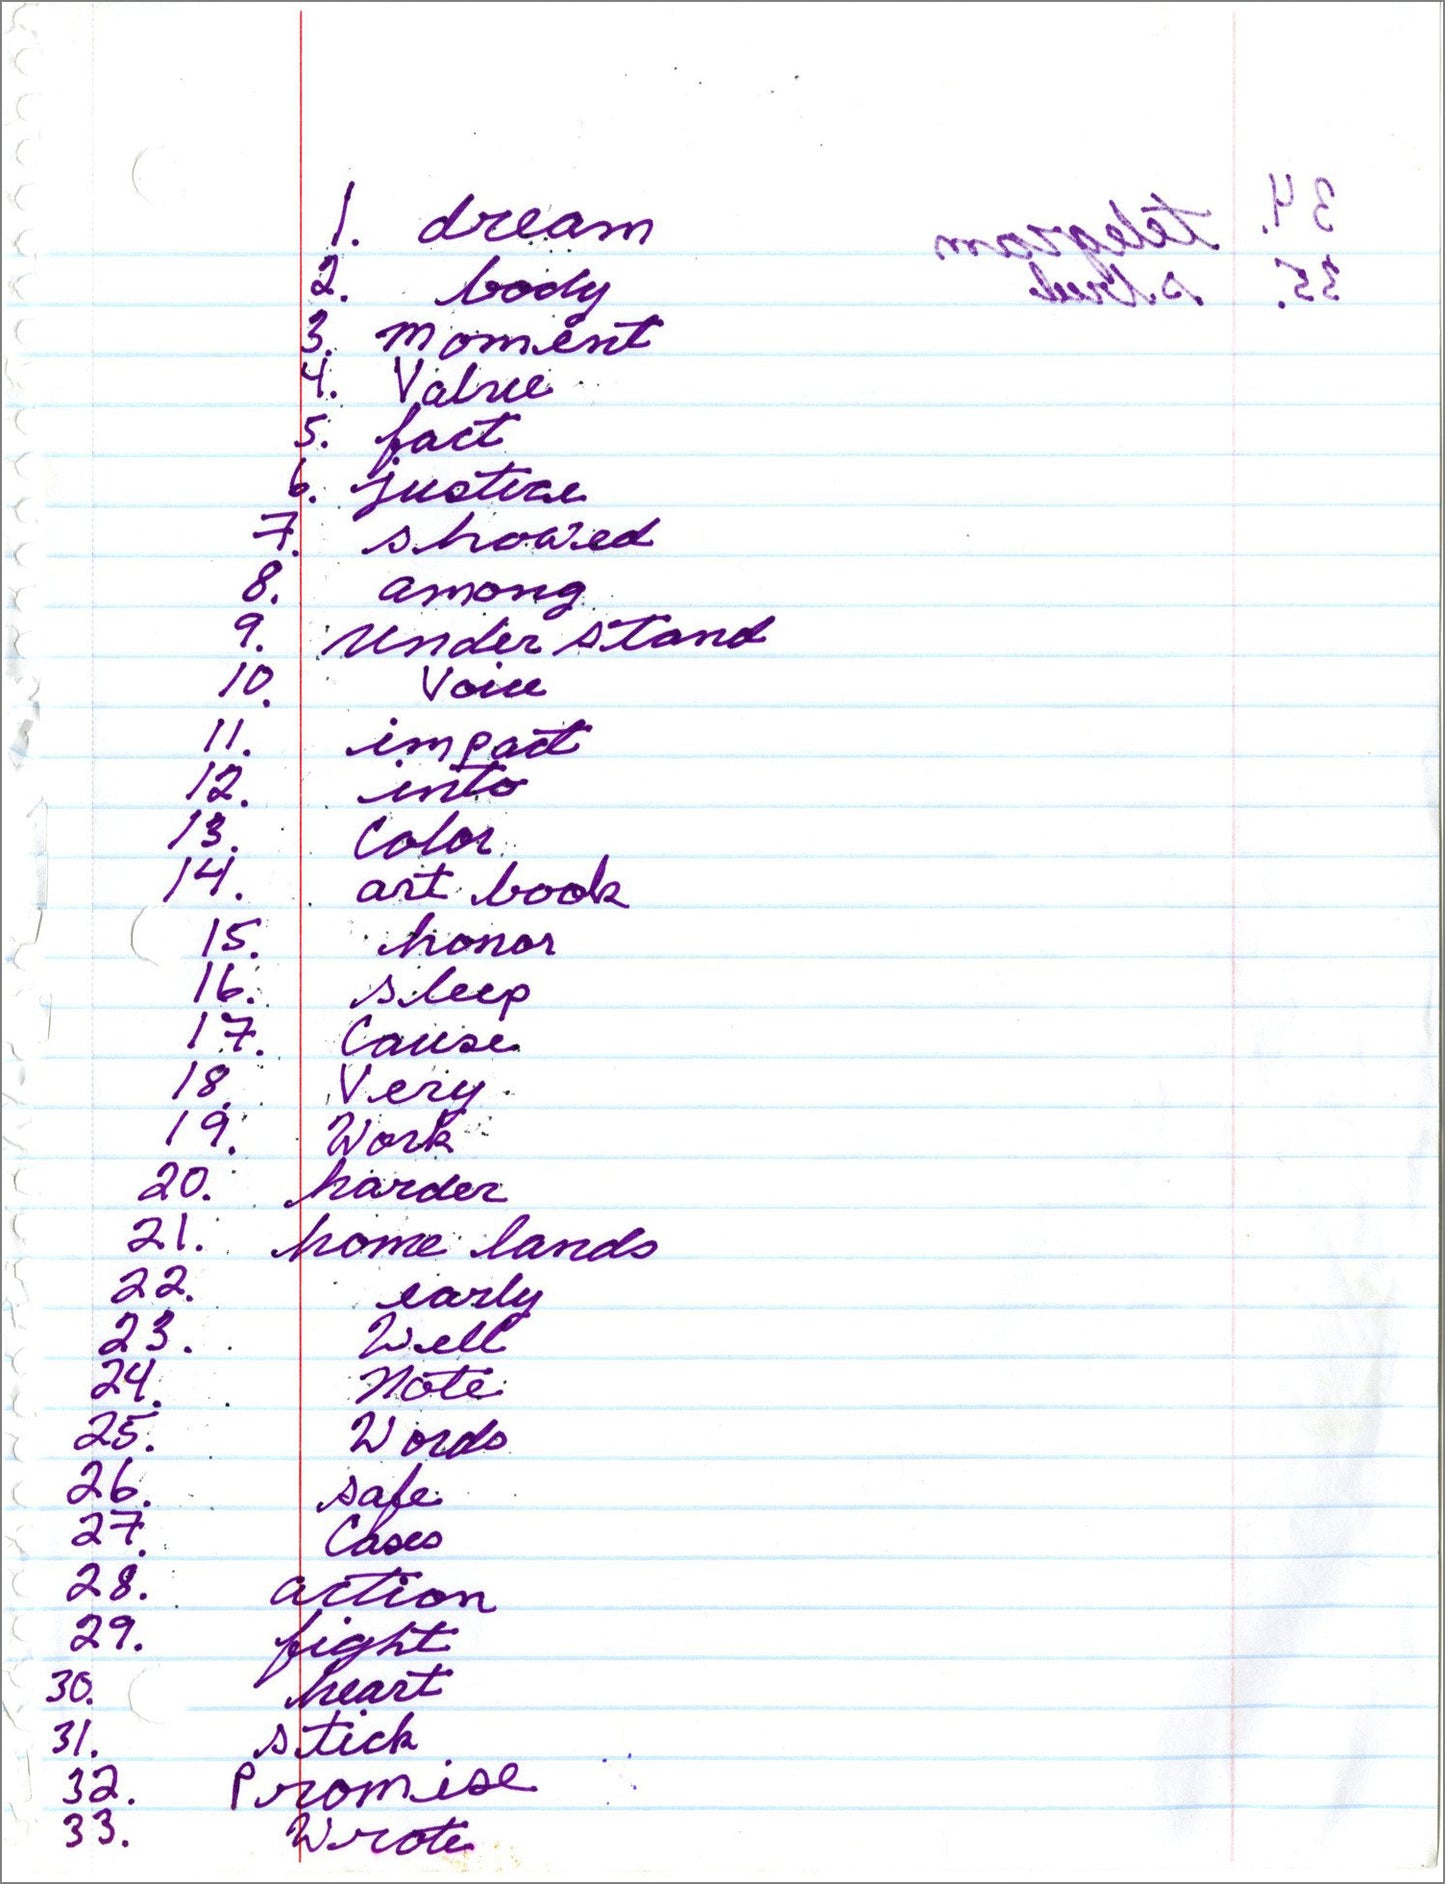 1. dream
2. body
3. Moment
4. Value
5. fact
6. justice
7. showed
8. among
9. Under stand
10. Voice
11. impact
12. into
13. Color
14. art book
15. honor
16. sleep
17. Cause
18. Very
19. Work
20. harder
21. home lands
22. early
23. Well
24. Note
25. Words
26. safe
27. Cases
28. action
29. fight
30. heart
31. stick
32. Promise
33. Wrote
34. telegram
35.